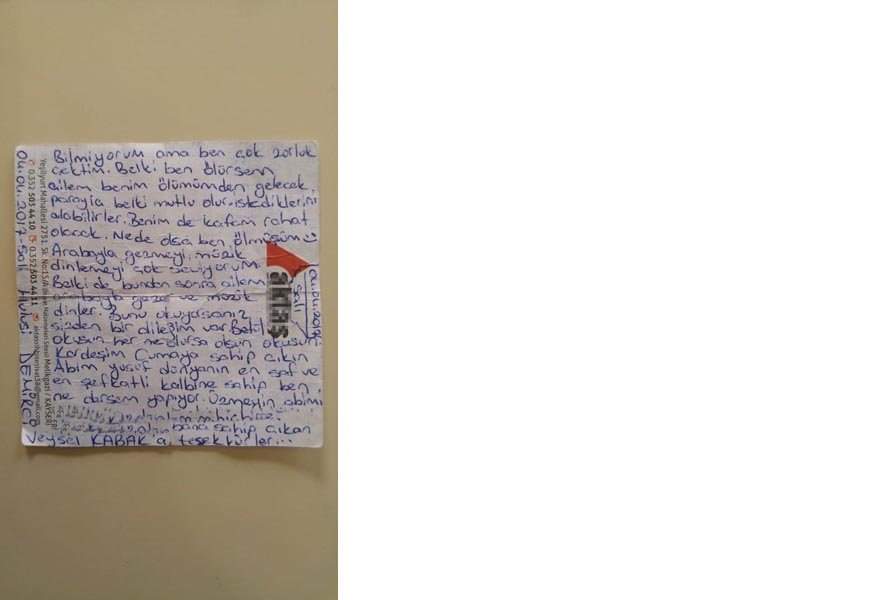 Bilmiyorum ama ben çok zorluk
çektim. Belki ben ölürsem
ailem benim ölümümden gelecek
parayla belki mutlu olur. istediklerini
alabilirler. Benim de kafam rahat
olacak. Nede olsa ben ölmüşüm
Arabayla gezmeyi, müzik
dinlemeyi çok seviyorum
Belki de bundan sonra ailem
arabayla gezer ve müzik
dinler. Bunu okuyorsanız
sizden bir dileğim var. Betül
okusun her ne olursa olsun okusun
Kardeşim Cumaya sahip çıkın
Abim yusuf dünyanın en saf ve
en şefkatli kalbine sahip ben
ne dersem yapıyor. Üzmeyin abimi
bana sahip çıkan
Veysel KABAK'a teşekkürler...
04.04.2017-Salı Hulusi DEMİRCİ
Yeşilyurt Mahallesi 2751. Sk. No:15/A
Melikgazi / KAYSERİ
0.352 503 44 10
0.352 503 44 11
aktaş
04.04.2017
Salı